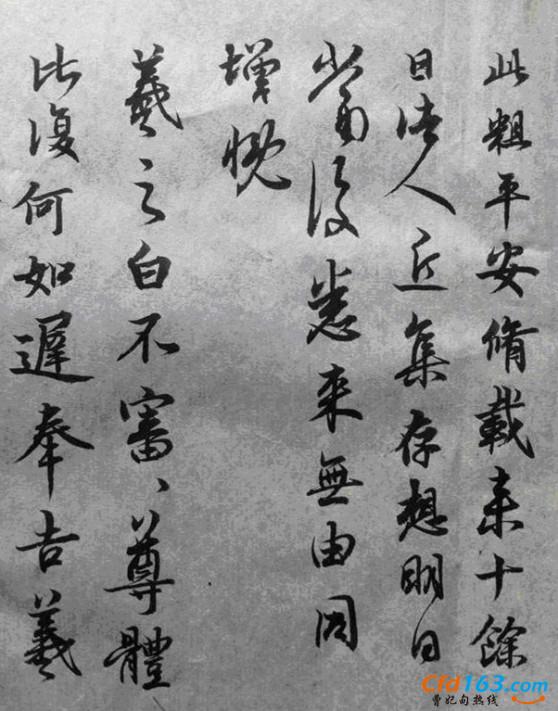 此粗平安脩載来十餘
日諸人近集存想明日
當復悉来無由同
增慨
羲之白不審、尊體
比復何如遲奉告羲
Cfd163.com
曹妃甸热线